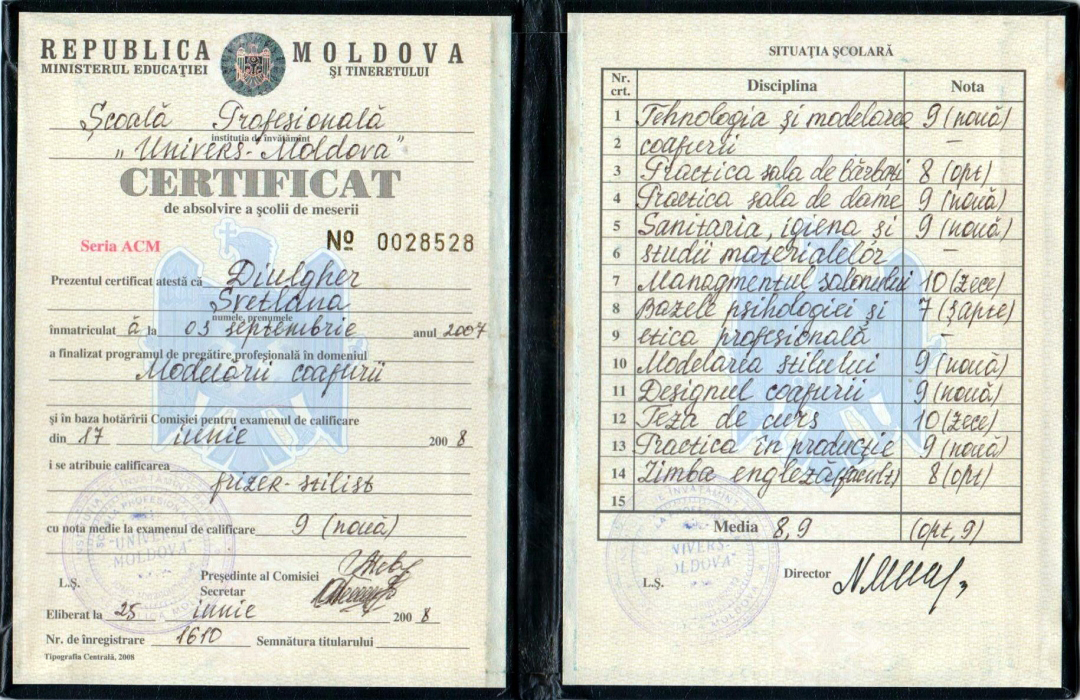 REPUBLICA MOLDOVA
MINISTERUL EDUCAȚIEI ȘI TINERETULUI
Școală Profesională
instituția de învățămînt
„Univers-Moldova”
CERTIFICAT
de absolvire a școlii de meserii
Seria ACM № 0028528
Prezentul certificat atestă că Diulgher
Svetlana
numele, prenumele
înmatriculat ă la 03 septembrie anul 2007
a finalizat programul de pregătire profesională în domeniul
Modelării coafurii
și în baza hotărîrii Comisiei pentru examenul de calificare
din 17 iunie 200 8
i se atribuie calificarea
frizer-stilist
cu nota medie la examenul de calificare 9 (nouă)
"UNIVERS-
MOLDOVA"
L.Ș. Președinte al Comisiei
Secretar
Eliberat la 25 iunie 200 8
Nr. de înregistrare 1610 Semnătura titularului
Tipografia Centrală, 2008
SITUAȚIA ȘCOLARĂ
Nr. crt. Disciplina Nota
1 Tehnologia și modelarea 9 (nouă)
2 coafurii –
3 Practica sala de bărbați 8 (opt)
4 Practica sala de dame 9 (nouă)
5 Sanitaria, igiena și 9 (nouă)
6 studii materialelor –
7 Managmentul salonului 10 (zece)
8 Bazele psihologiei și 7 (șapte)
9 etica profesională
10 Modelarea stilului 9 (nouă)
11 Designul coafurii 9 (nouă)
12 Teza de curs 10 (zece)
13 Practica în producție 9 (nouă)
14 Limba engleză (facult) 8 (opt)
15
Media 8,9 (opt, 9)
L.Ș. Director